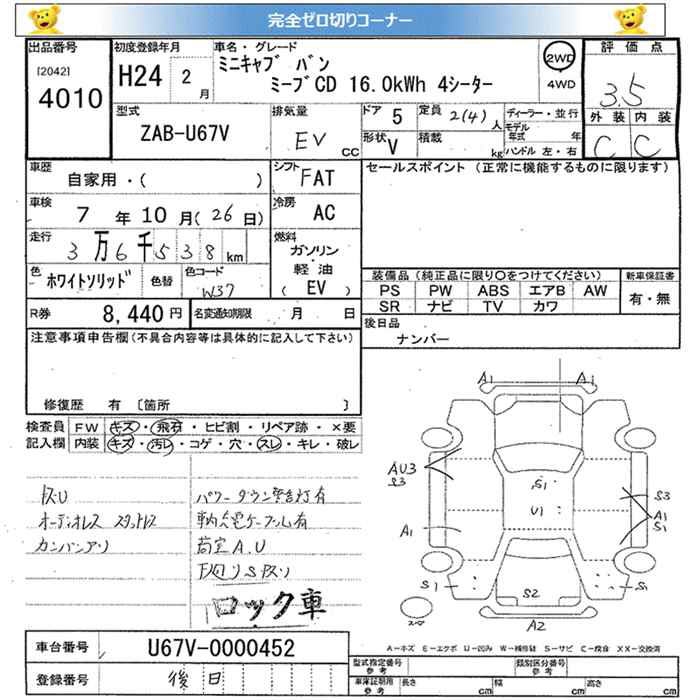 完全ゼロ切りコーナー
出品番号 初度登録年月 車名・グレード 評価点
[2042] 4010 H24 2月 ミニキャブ バン 2WD
ミーブCD 16.0kWh 4シーター 4WD 3.5
型式 排気量 ドア 5 定員 2(4)人 ディーラー・並行 外装 内装
ZAB-U67V EV cc 形状 V 積載 kg モデル年式 年 C C
ハンドル 左・右
車歴 シフト セールスポイント (正常に機能するものに限ります)
自家用・( ) FAT
車検 7年10月(26日) 冷房 AC
走行 3万6千538km 燃料 ガソリン
軽油
(EV)
色 ホワイトソリッド 色替 色コード W37
装備品(純正品に限り○をつけてください) 新車保証書
PS PW ABS エアB AW 有・無
SR ナビ TV カワ
R券 8,440円 名変通知期限 月 日 後日品
ナンバー
注意事項申告欄(不具合内容等は具体的に記入して下さい)
修復歴 有 〔箇所 〕
検査員 FW キズ・飛石・ヒビ割・リペア跡・×要
記入欄 内装 キズ・汚レ・コゲ・穴・スレ・キレ・破レ
A1 A1
AU3 S3 S1 S3
U1 A1 S1
A1
S1 S2 S1
A2
パワーダウン警告灯有
オーディオレス スタットレス 車内充電ケーブル有
カンバンアリ 荷室A.U
下廻りS
ロック車
車台番号 U67V-0000452
A-キズ E-エクボ U-凹み W-補修跡 S-サビ C-腐食 XX-交換済
登録番号 後日
型式指定番号 参考 類別区分番号 参考
車庫証明用 参考 長さ cm 幅 cm 高さ cm